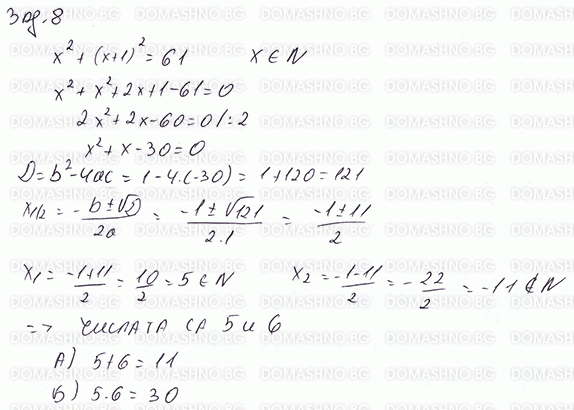 Зад. 8
x² + (x+1)² = 61      x ∈ N
x² + x² + 2x + 1 - 61 = 0
2x² + 2x - 60 = 0 /: 2
x² + x - 30 = 0
D = b² - 4ac = 1 - 4.(-30) = 1 + 120 = 121
x1/2 = -b ± √D / 2a = -1 ± √121 / 2.1 = -1 ± 11 / 2
x₁ = -1+11 / 2 = 10 / 2 = 5 ∈ N      x₂ = -1-11 / 2 = -22 / 2 = -11 ∉ N
=> числата са 5 и 6
А) 5+6 = 11
Б) 5.6 = 30